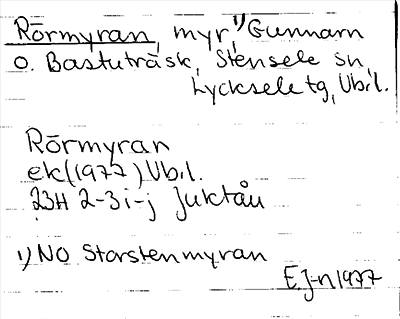 Rörmyran, myr,¹⁾ Gunnarn
o. Bastuträsk, Stensele sn,
Lycksele tg, Vb.l.
Rörmyran
ek (1977) Vb.l.
23H 2-3 i-j Juktån
¹⁾ NO Storstenmyran
EJ-n 1977